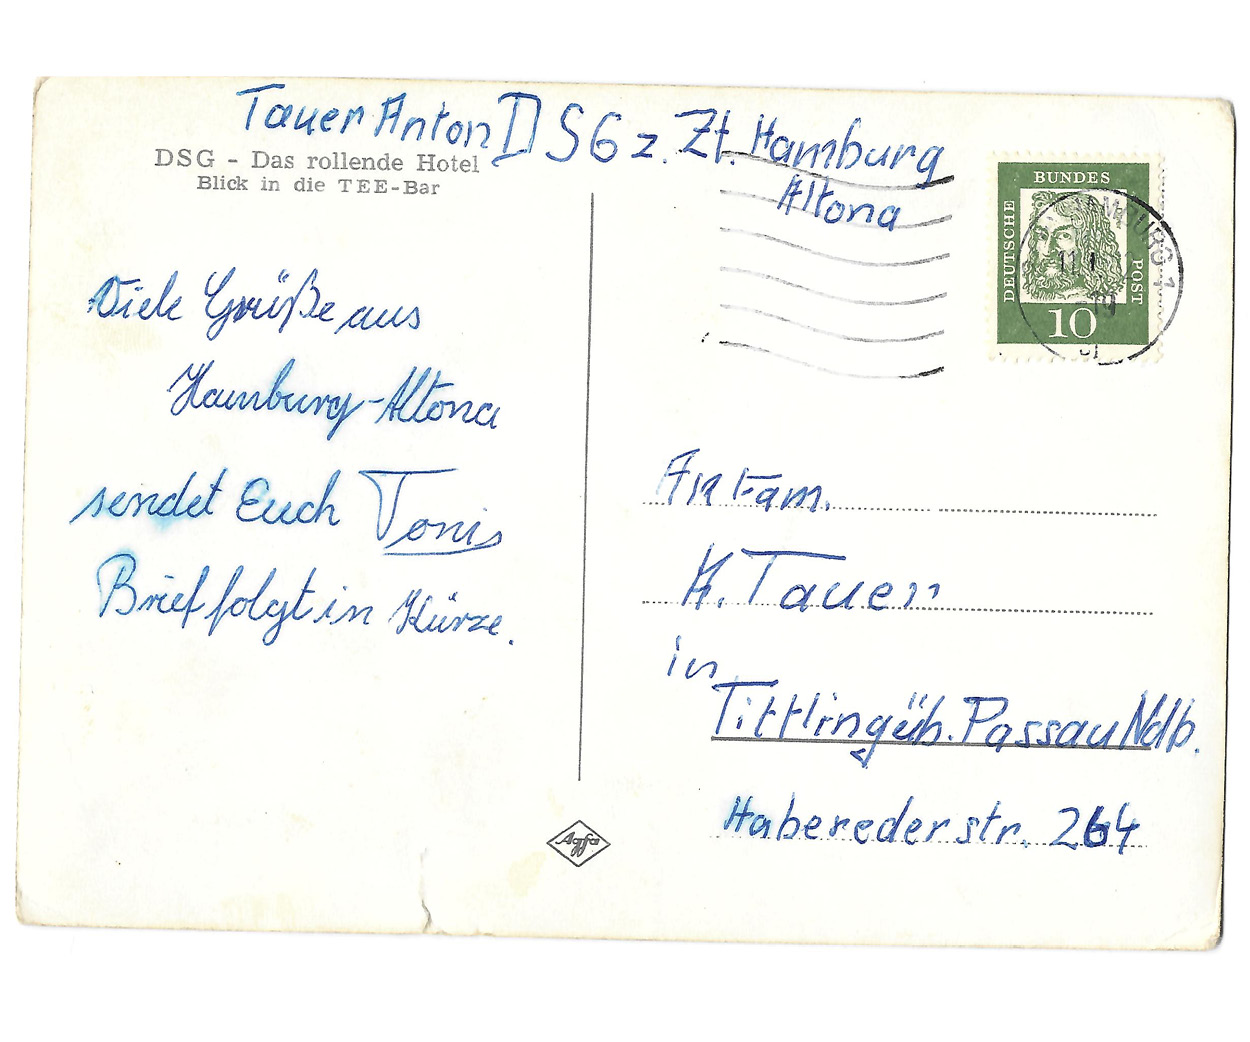 Tauer Anton DSG z. Zt. Hamburg
Altona
DSG - Das rollende Hotel
Blick in die TEE-Bar
DEUTSCHE
BUNDES
POST
10
HAMBURG 1
Viele Grüße aus
Hamburg-Altona
sendet Euch Toni
Brief folgt in Kürze.
An Fam.
H. Tauer
in
Tittling üb. Passau Ndb.
Haberederstr. 264
Agfa